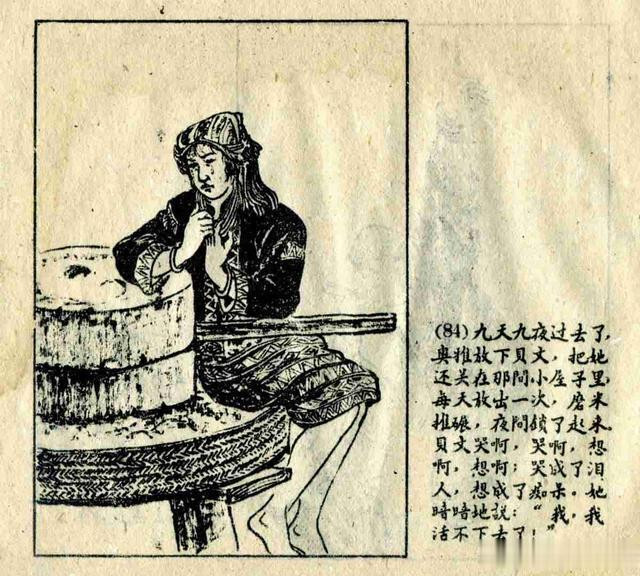 (84)九天九夜过去了,
奥雅放下贝文，把她
还关在那间小屋子里,
每天放出一次，磨米
推碾，夜间锁了起来.
贝文哭啊，哭啊，想
啊，想啊；哭成了泪
人，想成了痴呆。她
暗暗地説：“我，我
活不下去了！”